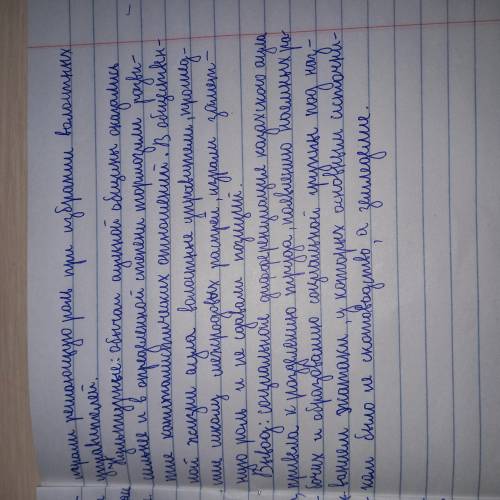 играли решающую роль при избрании волостных
управителей.
Культурные: обычаи аульной общины оказались
сильнее и в определенной степени тормозили разви-
тие капиталистических отношений. В обществен-
ной жизни аула волостные управители, прошед-
шие школу межродовых распрей, играли замет-
ную роль и не сдавали позиций.
Вывод: социальная дифференциация казахского аула
привела к разделению труда, появлению наемных ра-
бочих и образованию социальной группы под наз-
ванием жатаки, у которых основным источни-
ком было не скотоводство, а земледелие.